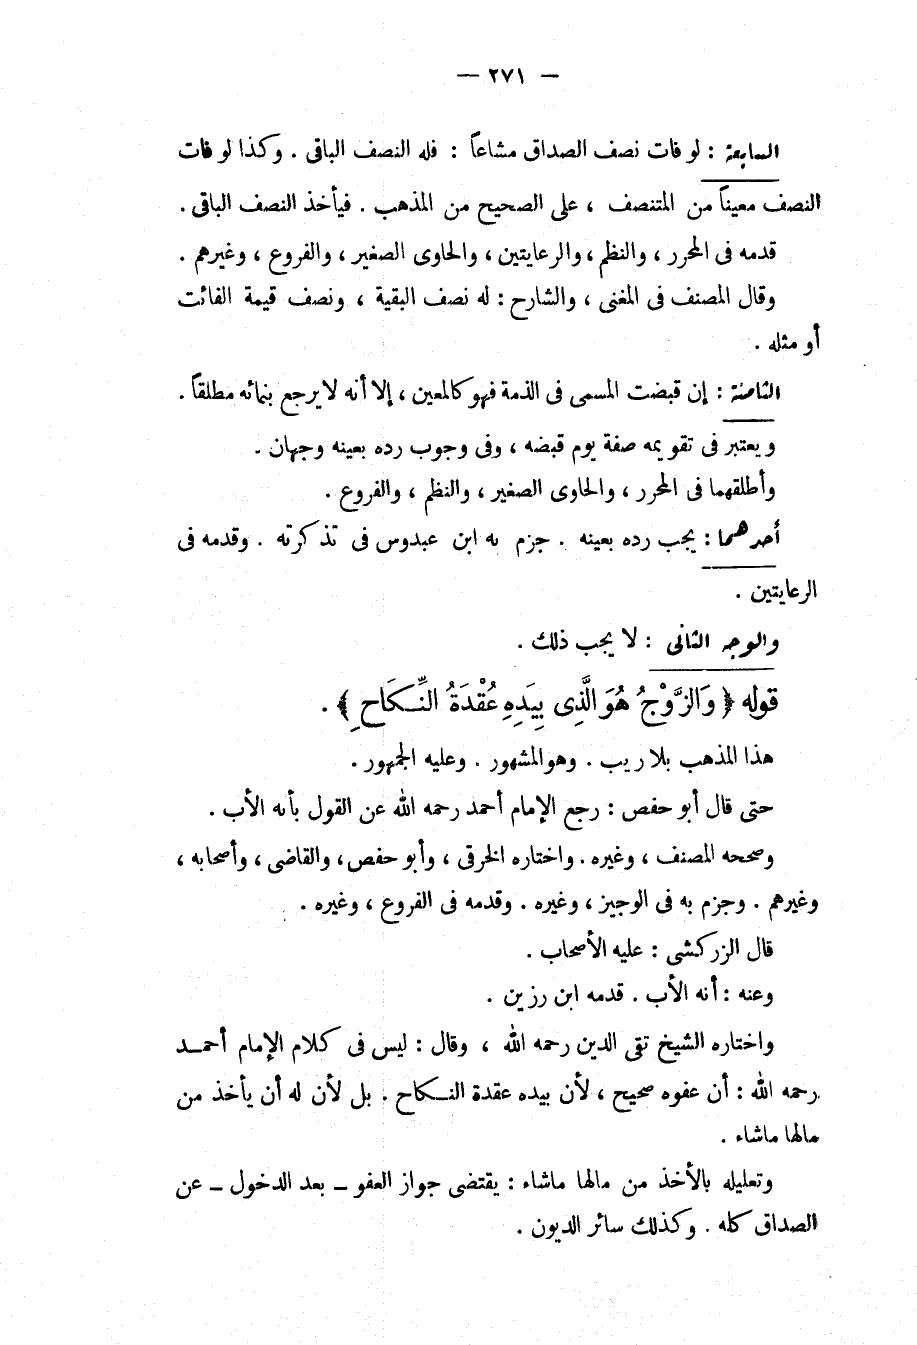 — ٢٧١ —
السابعة : لو فات نصف الصداق مشاعاً : فله النصف الباقى . وكذا لو فات
النصف معيناً من المتنصف ، على الصحيح من المذهب . فيأخذ النصف الباقى .
قدمه فى المحرر ، والنظم ، والرعايتين ، والحاوى الصغير ، والفروع ، وغيرهم .
وقال المصنف فى المغنى ، والشارح : له نصف البقية ، ونصف قيمة الفائت
أو مثله .
الثامنة : إن قبضت المسمى فى الذمة فهو كالمعين ، إلا أنه لا يرجع بنمائه مطلقاً .
ويعتبر فى تقويمه صفة يوم قبضه ، وفى وجوب رده بعينه وجهان .
وأطلقهما فى المحرر ، والحاوى الصغير ، والنظم ، والفروع .
أحدهما : يجب رده بعينه . جزم به ابن عبدوس فى تذكرته . وقدمه فى
الرعايتين .
والوجه الثانى : لا يجب ذلك .
قوله ﴿ وَالزَّوْجُ هُوَ الَّذِى بِيَدِهِ عُقْدَةُ النِّـكَاحِ ﴾ .
هذا المذهب بلا ريب . وهو المشهور . وعليه الجمهور .
حتى قال أبو حفص : رجع الإمام أحمد رحمه الله عن القول بأنه الأب .
وصححه المصنف ، وغيره . واختاره الخرقى ، وأبو حفص ، والقاضى ، وأصحابه ،
وغيرهم . وجزم به فى الوجيز ، وغيره . وقدمه فى الفروع ، وغيره .
قال الزركشى : عليه الأصحاب .
وعنه : أنه الأب . قدمه ابن رزين .
واختاره الشيخ تقى الدين رحمه الله ، وقال : ليس فى كلام الإمام أحمـد
رحمه الله : أن عفوه صحيح ، لأن بيده عقدة النـكاح . بل لأن له أن يأخذ من
مالها ماشاء .
وتعليله بالأخذ من مالها ماشاء : يقتضى جواز العفو ــ بعد الدخول ــ عن
الصداق كله . وكذلك سائر الديون .